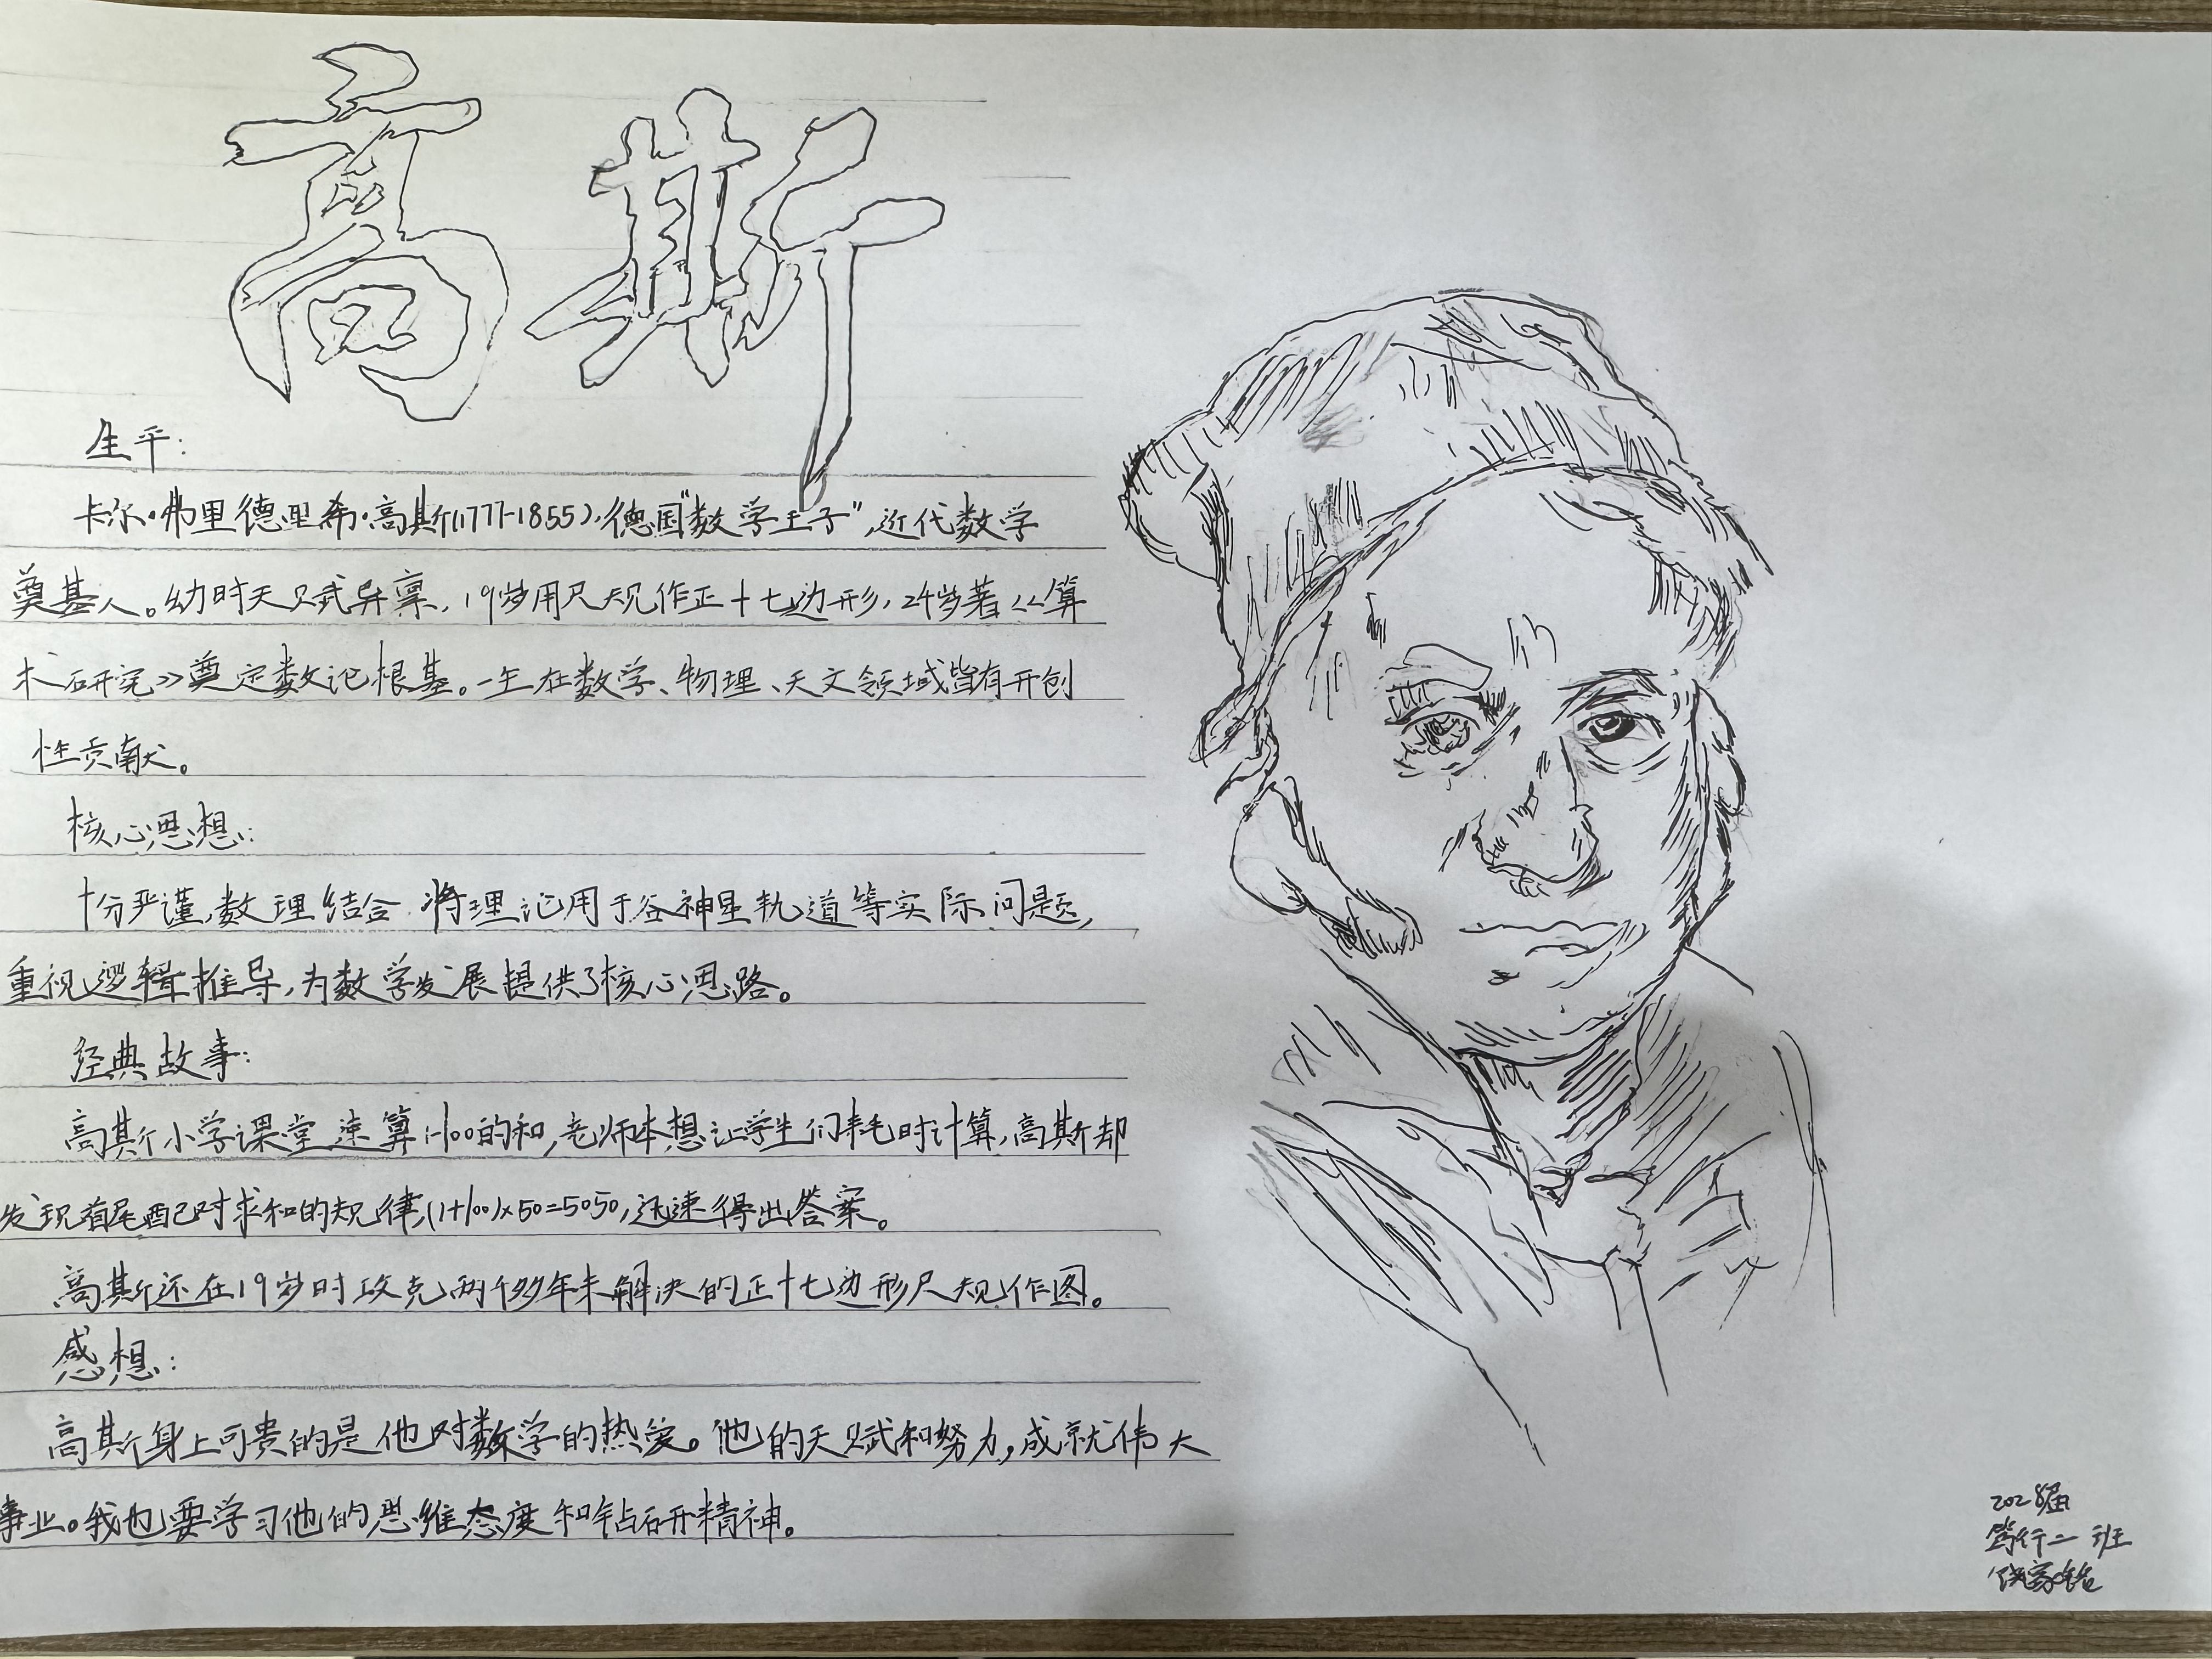 高斯
生平:
卡尔·弗里德里希·高斯(1777-1855),德国"数学王子",近代数学
奠基人。幼时天赋异禀,19岁用尺规作正十七边形,24岁著<<算
术研究>>奠定数论根基。一生在数学、物理、天文领域皆有开创
性贡献。
核心思想:
十分严谨,数理结合.将理论用于谷神星轨道等实际问题,
重视逻辑推导,为数学发展提供了核心思路。
经典故事:
高斯小学课堂速算1-100的和,老师本想让学生们耗时计算,高斯却
发现首尾配对求和的规律,(1+100)×50=5050,迅速得出答案。
高斯还在19岁时攻克两千多年未解决的正十七边形尺规作图。
感想:
高斯身上可贵的是他对数学的热爱。他的天赋和努力,成就伟大
事业。我也要学习他的思维态度和钻研精神。
2028届
笃行二班